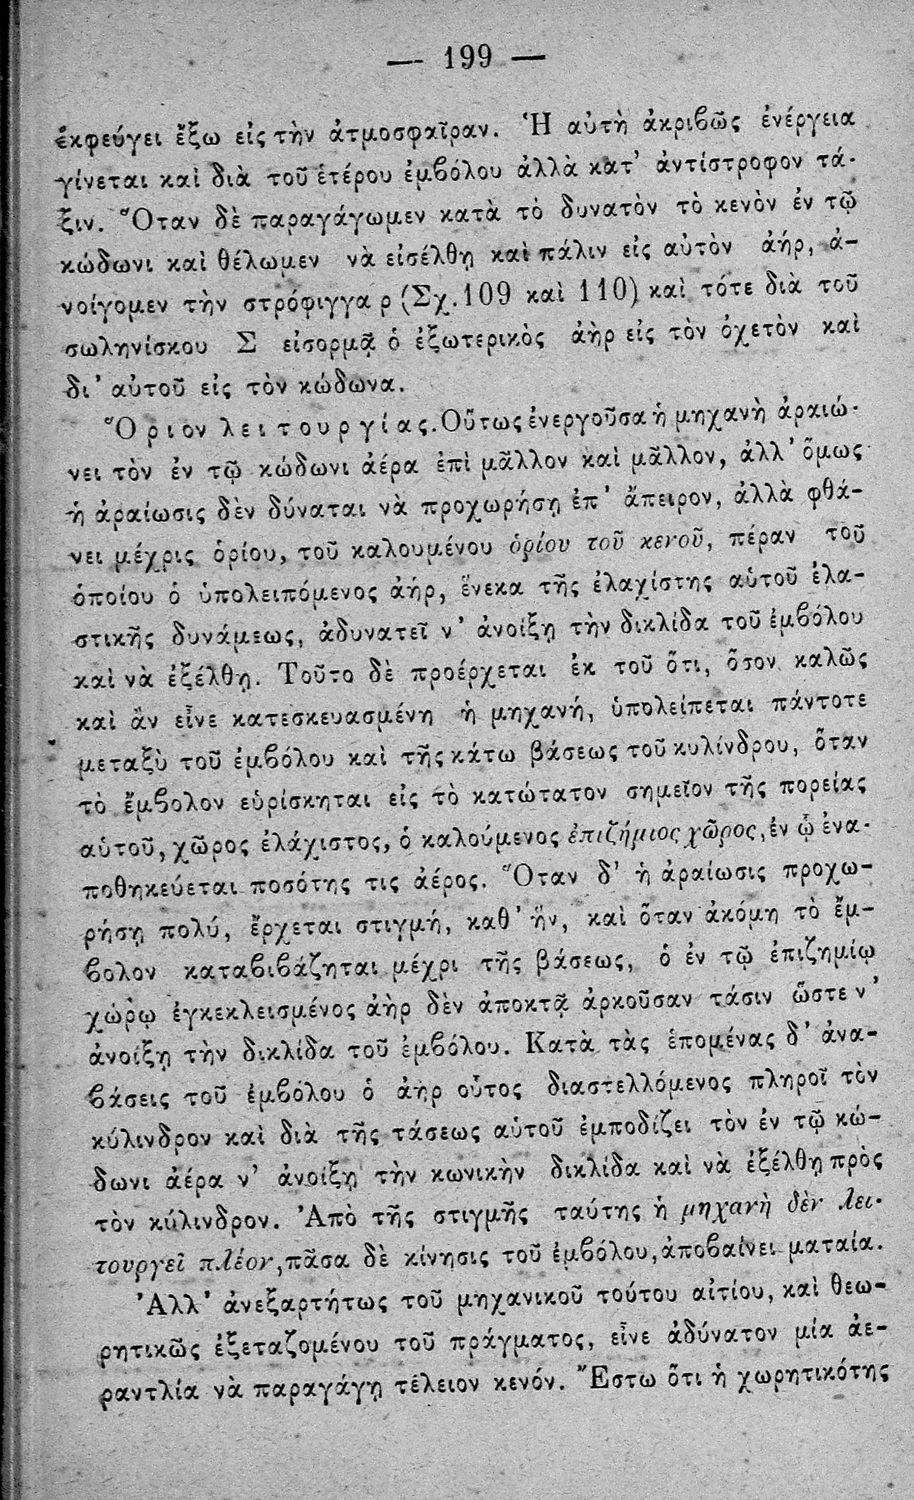 — 199 —
ἐκφεύγει ἔξω εἰς τὴν ἀτμοσφαῖραν. Ἡ αὐτὴ ἀκριβῶς ἐνέργεια
γίνεται καὶ διὰ τοῦ ἑτέρου ἐμβόλου ἀλλὰ κατ' ἀντίστροφον τά-
ξιν. Ὅταν δὲ παραγάγωμεν κατὰ τὸ δυνατὸν τὸ κενὸν ἐν τῷ
κώδωνι καὶ θέλωμεν νὰ εἰσέλθῃ καὶ πάλιν εἰς αὐτὸν ἀήρ, ἀ-
νοίγομεν τὴν στρόφιγγα ρ (Σχ. 109 καὶ 110) καὶ τότε διὰ τοῦ
σωληνίσκου Σ εἰσορμᾷ ὁ ἐξωτερικὸς ἀὴρ εἰς τὸν ὀχετὸν καὶ
δι' αὐτοῦ εἰς τὸν κώδωνα.
Ὅριον λειτουργίας. Οὕτως ἐνεργοῦσα ἡ μηχανὴ ἀραιώ-
νει τὸν ἐν τῷ κώδωνι ἀέρα ἐπὶ μᾶλλον καὶ μᾶλλον, ἀλλ' ὅμως
ἡ ἀραίωσις δὲν δύναται νὰ προχωρήσῃ ἐπ' ἄπειρον, ἀλλὰ φθά-
νει μέχρις ὁρίου, τοῦ καλουμένου ὁρίου τοῦ κενοῦ, πέραν τοῦ
ὁποίου ὁ ὑπολειπόμενος ἀήρ, ἕνεκα τῆς ἐλαχίστης αὑτοῦ ἐλα-
στικῆς δυνάμεως, ἀδυνατεῖ ν' ἀνοίξῃ τὴν δικλίδα τοῦ ἐμβόλου
καὶ νὰ ἐξέλθῃ. Τοῦτο δὲ προέρχεται ἐκ τοῦ ὅτι, ὅσον καλῶς
καὶ ἂν εἶνε κατεσκευασμένη ἡ μηχανή, ὑπολείπεται πάντοτε
μεταξὺ τοῦ ἐμβόλου καὶ τῆς κάτω βάσεως τοῦ κυλίνδρου, ὅταν
τὸ ἔμβολον εὑρίσκηται εἰς τὸ κατώτατον σημεῖον τῆς πορείας
αὑτοῦ, χῶρος ἐλάχιστος, ὁ καλούμενος ἐπιζήμιος χῶρος, ἐν ᾧ ἐνα-
ποθηκεύεται ποσότης τις ἀέρος. Ὅταν δ' ἡ ἀραίωσις προχω-
ρήσῃ πολύ, ἔρχεται στιγμή, καθ' ἥν, καὶ ὅταν ἀκόμη τὸ ἔμ-
βολον καταβιβάζηται μέχρι τῆς βάσεως, ὁ ἐν τῷ ἐπιζημίῳ
χώρῳ ἐγκεκλεισμένος ἀὴρ δὲν ἀποκτᾷ ἀρκοῦσαν τάσιν ὥστε ν'
ἀνοίξῃ τὴν δικλίδα τοῦ ἐμβόλου. Κατὰ τὰς ἑπομένας δ' ἀνα-
βάσεις τοῦ ἐμβόλου ὁ ἀὴρ οὗτος διαστελλόμενος πληροῖ τὸν
κύλινδρον καὶ διὰ τῆς τάσεως αὑτοῦ ἐμποδίζει τὸν ἐν τῷ κώ-
δωνι ἀέρα ν' ἀνοίξῃ τὴν κωνικὴν δικλίδα καὶ νὰ ἐξέλθῃ πρὸς
τὸν κύλινδρον. Ἀπὸ τῆς στιγμῆς ταύτης ἡ μηχανὴ δὲν λει-
τουργεῖ πλέον, πᾶσα δὲ κίνησις τοῦ ἐμβόλου, ἀποβαίνει ματαία.
Ἀλλ' ἀνεξαρτήτως τοῦ μηχανικοῦ τούτου αἰτίου, καὶ θεω-
ρητικῶς ἐξεταζομένου τοῦ πράγματος, εἶνε ἀδύνατον μία ἀε-
ραντλία νὰ παραγάγῃ τέλειον κενόν. Ἔστω ὅτι ἡ χωρητικότης